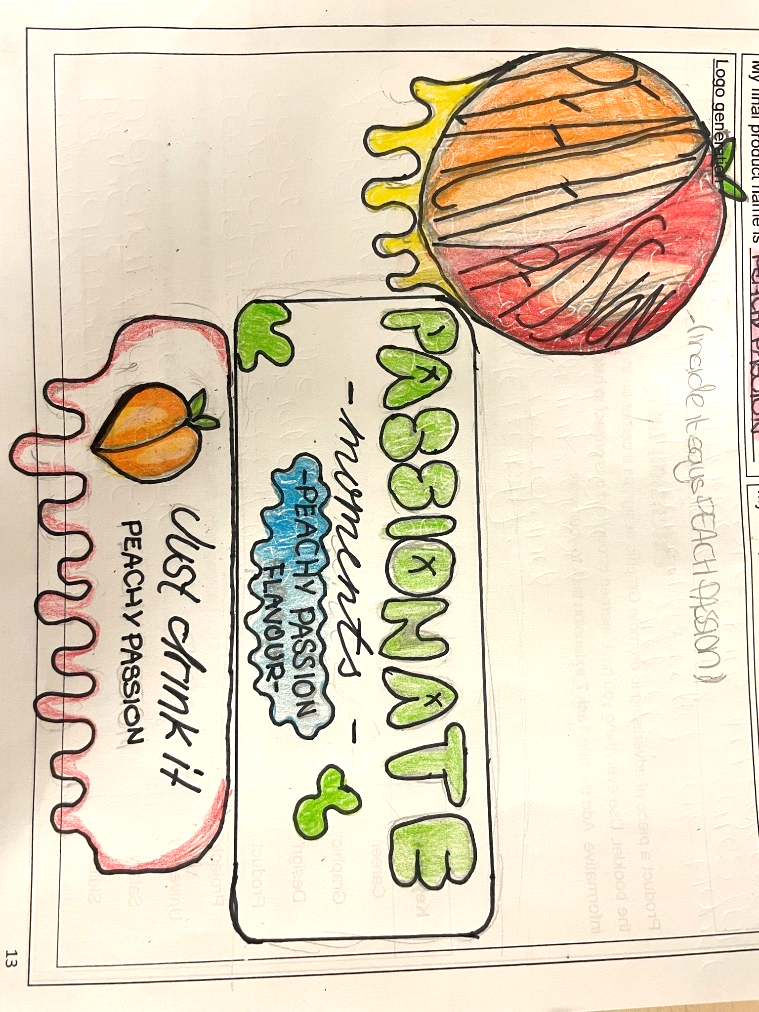 My final product name is PEACHY PASSION
Logo generation
-(inside it says PEACH PASSION)
PASSIONATE
-moments-
-PEACHY PASSION
FLAVOUR-
Just drink it
PEACHY PASSION
13